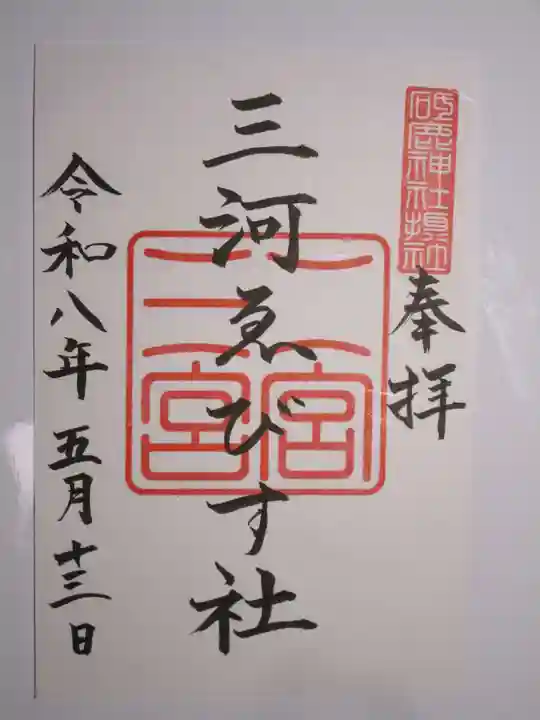 砥鹿神社摂社
奉拝
三河ゑびす社
三二
宮宮
令和八年五月十三日